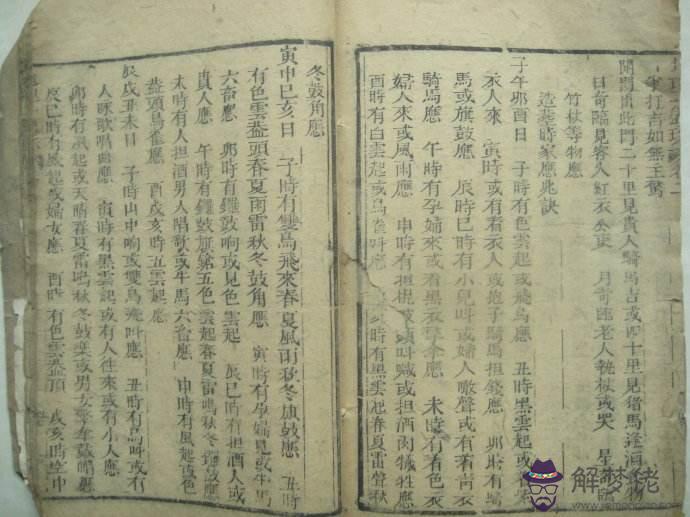 斗打吉如無主驚
開門出此門二十里見貴人騎馬吉或四十里見猪馬逢酒物
日奇臨見客人紅衣公吏　月奇臨老人執杖或哭　星
竹杖等物應
造葬時家應兆訣
子午卯酉日　子時有色雲起或飛鳥應　丑時黑雲起或
衣人來　寅時或有着衣人或抱子騎馬担錢應　卯時有騎
馬或旗鼓應　辰時巳時有小兒叫或婦人噉聲或有着青衣
騎馬應　午時有孕婦來或着黑衣擎傘應　未時有着色衣
婦人來或風雨應　申時有担棍旗頭叫喊或担酒肉犧牲應
酉時有白雲起或鳥雀叫應　時有黑雲起春夏雷聲秋
冬鼓角應
寅申巳亥日　子時有雙鳥飛來春夏風雨秋冬旗鼓應　丑時
有色雲蓋頭春夏雨雷秋冬鼓角應　寅時有孕婦見或牛馬
六畜應　卯時有鑼鼓响或見色雲起　辰巳時有担酒人或
貴人應　午時有鑼鼓旗鎗五色雲起春夏雷鳴秋冬鑼鼓應
未時有人担酒男人唱歌或牛馬六畜應　申時有風起或色
蓋頭鳥雀應　酉戌亥時五雲起應
辰戌丑未日　子時山中响或雙鳥飛叫應　丑時有馬叫或有
人啄歌唱曲應　寅時有黑雲起或有人往來或有小人應
卯時有風起或天晴春夏雷鳴秋冬鼓樂或男女擎傘戴帽應
辰巳時有風起或婦女應　酉時有色雲蓋頂　戌亥時空中
解夢佬